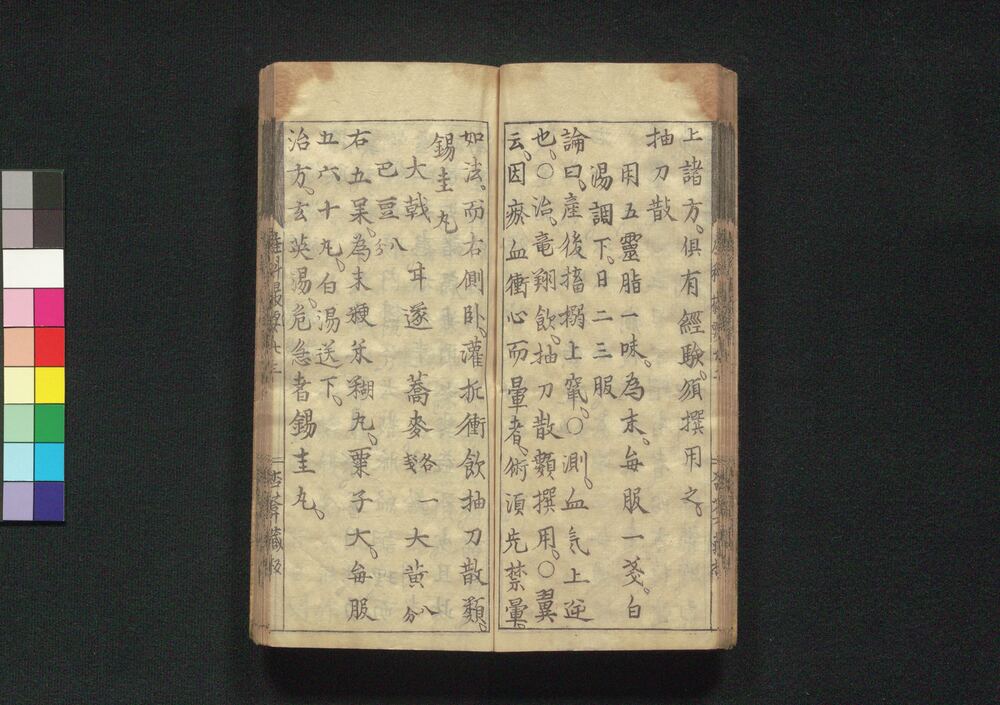 上諸方。俱有經驗。須撰用之。
抽刀散
用五靈脂一味。為末。每服一戔。白
湯調下。日二三服
論曰。產後搐搦上竄。〇測血氣上逆
也。〇治。竜翔飲。抽刀散類撰用。〇翼
云。因瘀血衝心而暈者。術須先禁暈。
如法。而右側卧。灌折衝飲抽刀散類。
錫圭丸
大戟 甘遂 蕎麥各一戔 大黄八分
巴豆八分
右五味。為末。粳米糊丸。粟子大。每服
五六十丸。白湯送下。
治方。玄英湯。危急者錫圭丸。